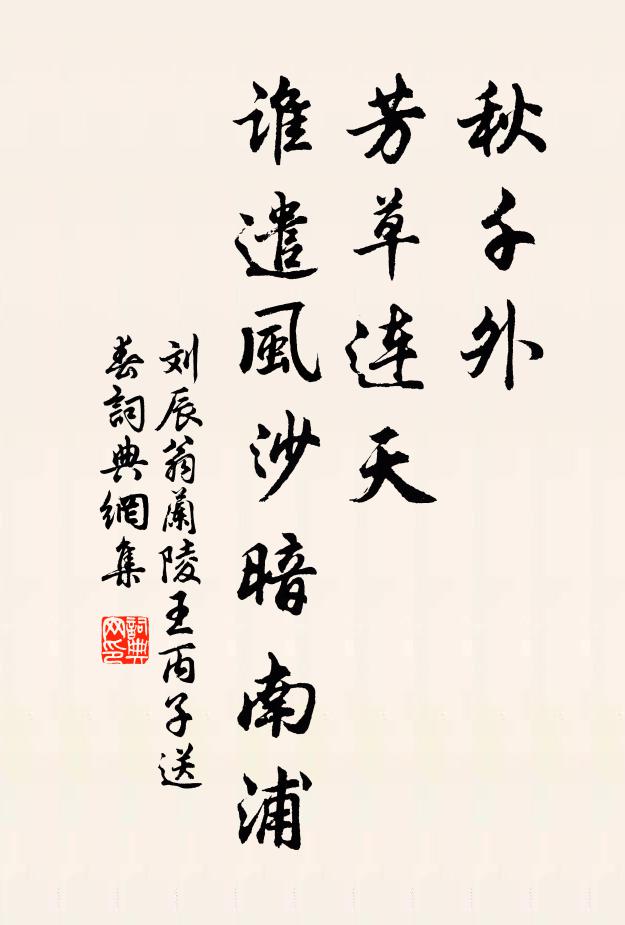 秋千外
芳草连天
谁遣風沙暗南浦
刘辰翁蘭陵王丙子送
春詞典網集
詞典
网印